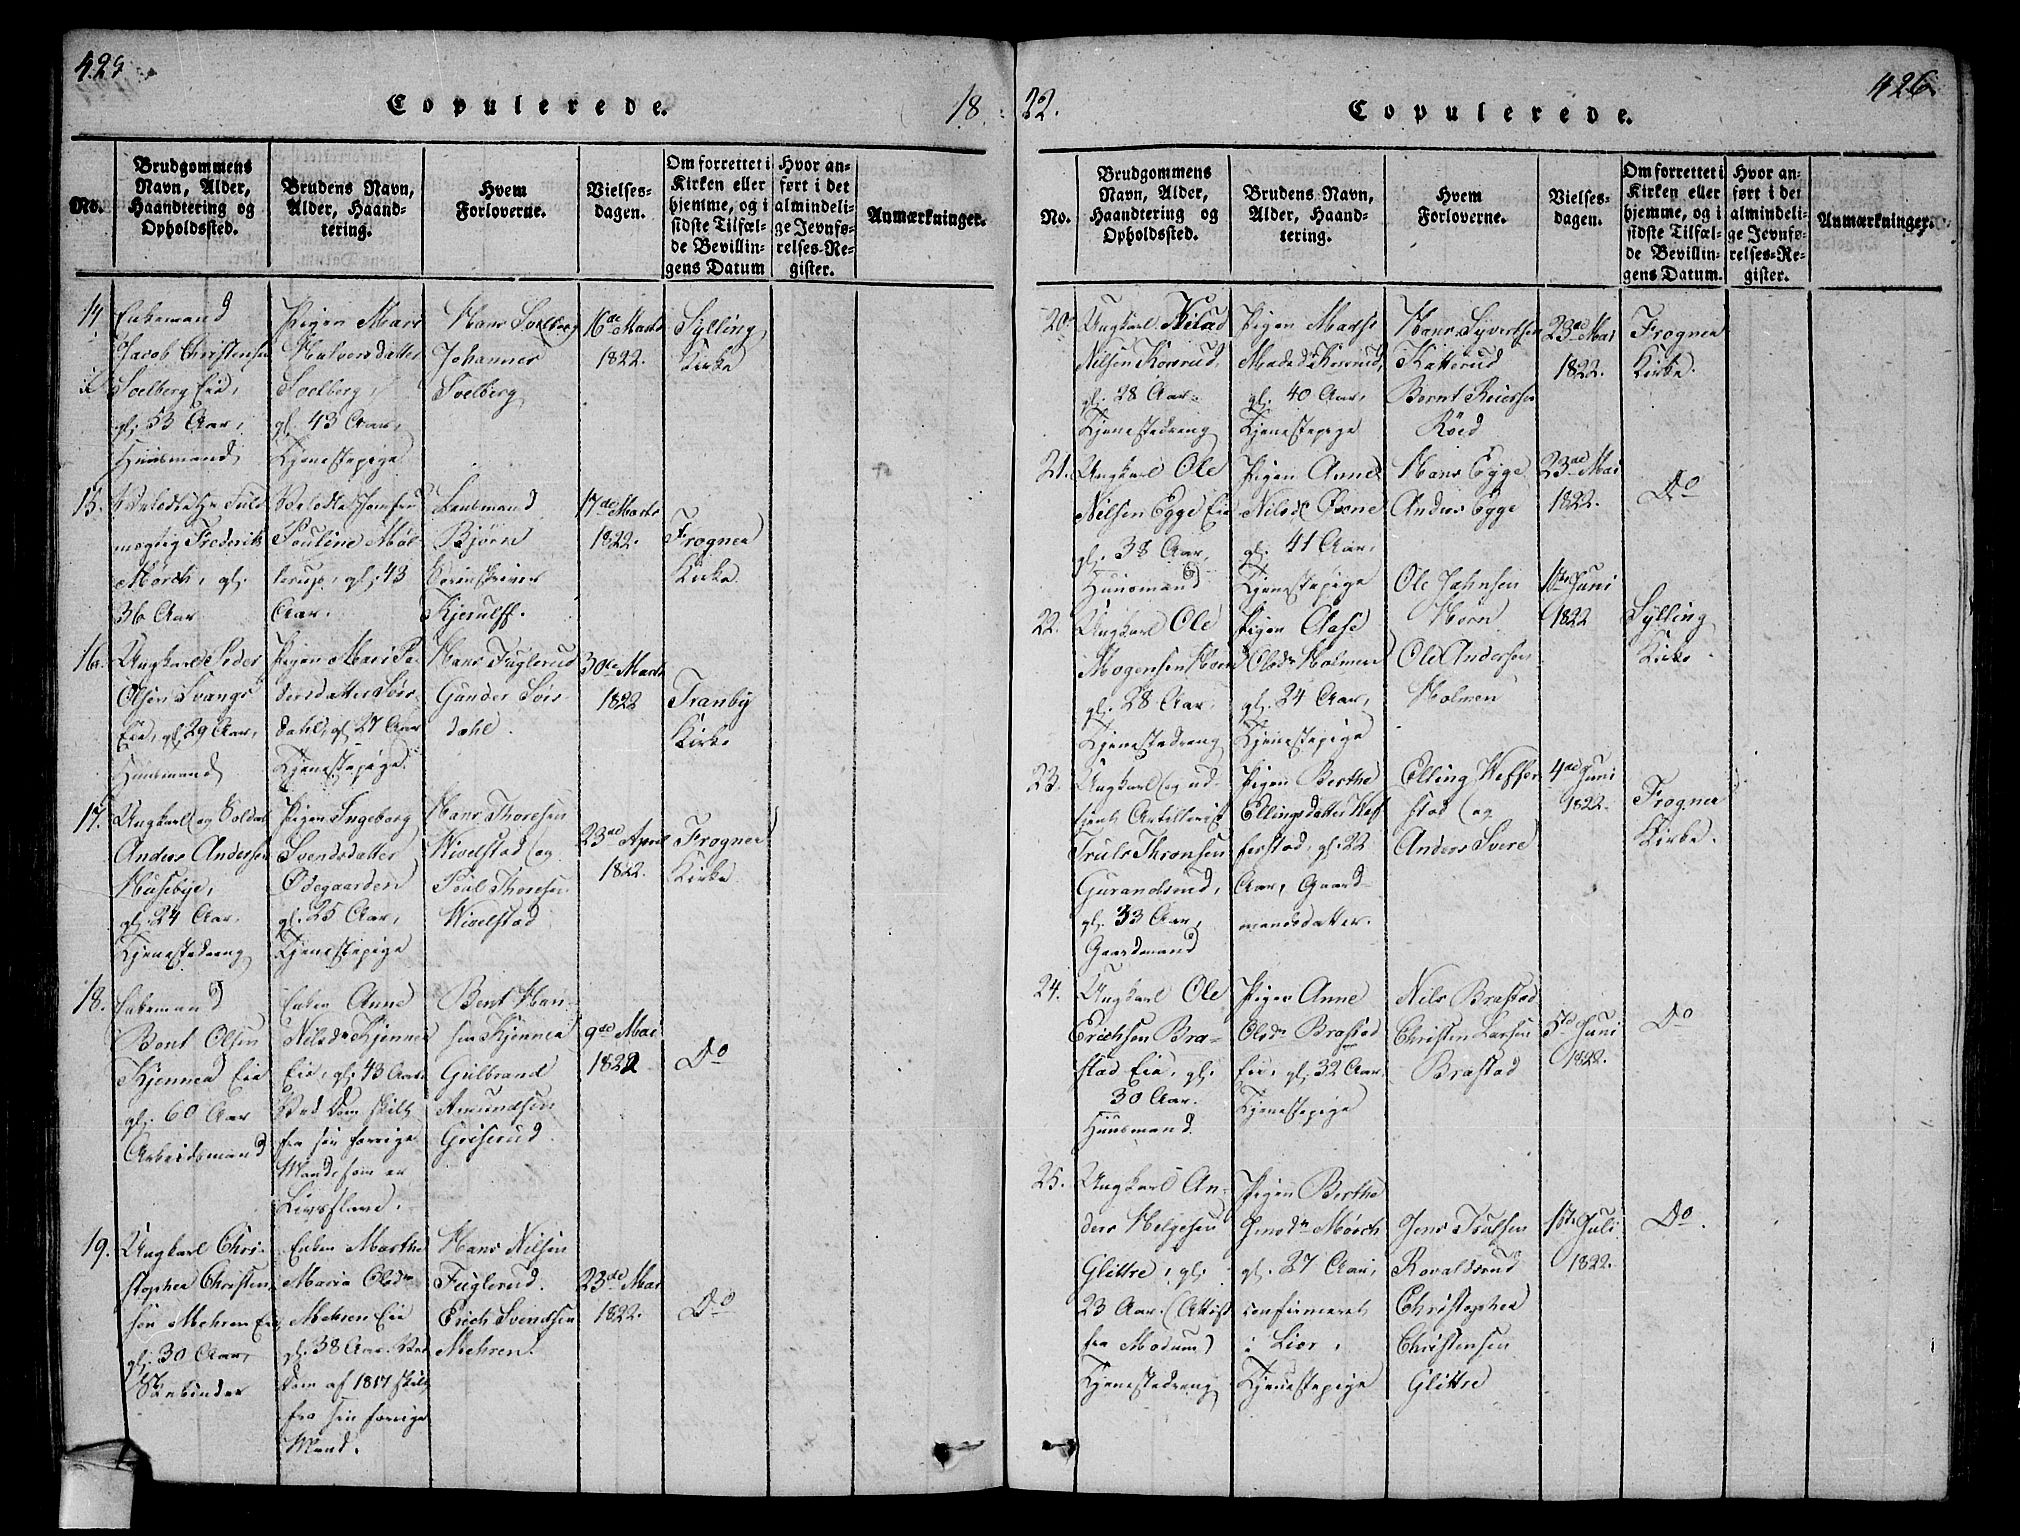 425
Copulerede.
18
No.
Brudgommens
Navn, Alder,
Haandtering og
Opholdssted.
Brudens Navn,
Alder, Haand-
tering.
Hvem
Forloverne.
Vielses-
dagen.
Om forrettet i
Kirken eller
hjemme, og i
sidste Tilfæl-
de Bevillin-
gens Datum
Hvor an-
ført i det
almindeli-
ge Jevnfø-
relses-Re-
gister.
Anmærkninger.
14.
Enkemand
Jacob Christensen
Soelberg Eie,
gl. 53 Aar,
Huusmand
Pigen Mari
Halvorsdatter
Soelberg,
gl. 43 Aar,
Tjenestepige
Hans Soelberg
Johannes
Soelberg
16de Marts
1822.
Sylling
Kirke
15.
Velædle Hr Fuld
mægtig Frederik
Mørch, gl.
36 Aar
Velædle Jomfru
Pauline Møl-
lerup, gl. 43
Aar.
Lensmand
Bjørn
Sorenskriver
Kjerulff.
17de Marts
1822.
Frogner
Kirke
16.
Ungkarl Peder
Olsen Svangs
Eie, gl. 29 Aar,
Huusmand
Pigen Mari Pe-
dersdatter Sørs-
dahl, gl. 27 Aar
Tjenestepige.
Hans Fuglerud
Gunder Sørs-
dahl.
30de Marts
1822
Tranby
Kirke
17.
Ungkarl og Soldat
Anders Andersen
Huseby,
gl. 24 Aar.
Tjenestedreng
Pigen Ingeborg
Svendsdatter
Ødegaarden
gl. 25 Aar,
Tjenestepige
Hans Thoresen
Wivelstad og
Poul Thoresen
Wivelstad
23de April
1822.
Frogner
Kirke
18.
Enkemand
Bent Olsen
Kjennea Eie
gl. 60 Aar
Arbeidsmand
Enken Anne
Nilsdr Kjenner
Eie, gl. 43 Aar
Ved Dom skilt
fra sin forrige
Mand, som er
Livsslave.
Bent Han-
sen Kjennea
Gulbrand
Amundsen
Griserud.
9de Mai
1822
Do
19.
Ungkarl Chri-
stopher Christen-
sen Mehren Eie,
gl. 30 Aar,
Enken Marthe
Maria Olsdr
Mehren Eie
gl. 38 Aar. Ved
Dom af 1817 skilt
fra sin forrige
Mand.
Hans Nilsen
Fuglerud.
Erich Svendsen
Mehren.
23de Mai
1822.
Do
22.
Copulerede.
426.
No.
Brudgommens
Navn, Alder,
Haandtering og
Opholdssted.
Brudens Navn,
Alder, Haand-
tering.
Hvem
Forloverne.
Vielses-
dagen.
Om forrettet i
Kirken eller
hjemme, og i
sidste Tilfæl-
de Bevillin-
gens Datum.
Hvor an-
ført i det
almindeli-
ge Jevnfø-
relses-Re-
gister.
Anmærkninger.
20.
Ungkarl
Nilsen Korsrud,
gl. 28 Aar.
Tjenestedreng
Pigen Marthe
Madsdr Korsrud,
gl. 40 Aar,
Tjenestepige
Hans Syvertsen
Katterud
Bernt Reiersen
Röed
23de Mai
1822.
Frogner
Kirke.
21.
Ungkarl Ole
Nilsen Egge Eie
gl. 38 Aar,
Huusmand
Pigen Anne
Nilsdr Oxne
gl. 41 Aar,
Tjenestepige
Hans Egge
Anders Egge
23de Mai
1822.
Do
22.
Ungkarl Ole
Mogensen Horn
gl. 28 Aar.
Tjenestedreng
Pigen Aase
Olsdr Holmen
gl. 24 Aar,
Tjenestepige
Ole Jahnsen
Horn
Ole Andersen
Holmen
1ste Juni
1822
Sylling
Kirke
23.
Ungkarl og ud-
tjent Artillerist
Truls Thronsen
Gurandsrud,
gl. 33 Aar,
Gaardmand
Pigen Berthe
Ellingsdatter Wef-
ferstad, gl. 22
Aar, Gaard-
mandsdatter.
Elling Weffer-
stad og
Anders Svere
4de Juni
1822.
Frogner
Kirke.
24.
Ungkarl Ole
Erichsen Bra-
stad Eie, gl.
30 Aar.
Huusmand.
Pigen Anne
Olsdr Brastad
Eie, gl. 32 Aar.
Tjenestepige
Nils Brastad
Christen Larsen
Brastad
5te Juni
1822.
Do
25.
Ungkarl An-
ders Helgesen
Glittre, gl.
23 Aar. (Attest
fra Modum)
Tjenestedreng
Pigen Berthe
Jensdr Mørch
gl. 27 Aar,
confirmeret
i Lier,
Tjenestepige
Jens Trulsen
Rovaldsrud
Christopher
Christensen
Glittre
1ste Juli
1822.
Do.